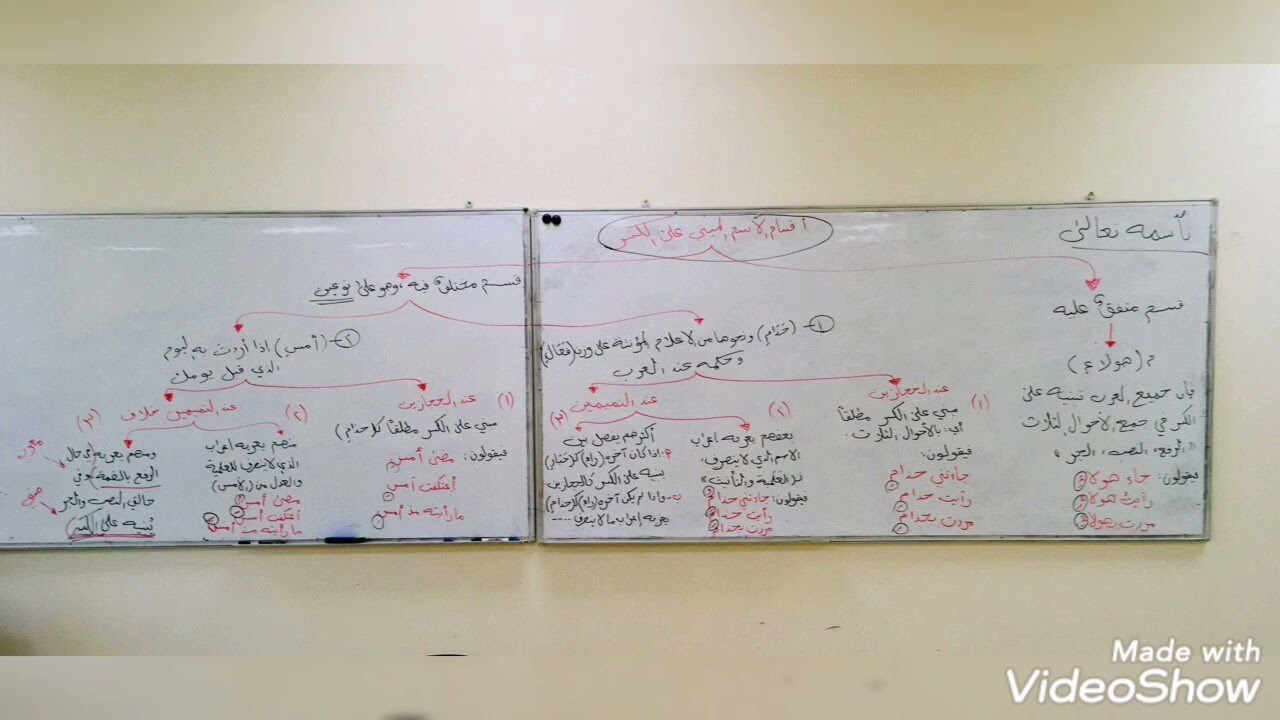 بأسمه تعالى
أقسام الاسم المبني على الكسر
قسم متفق عليه
(هؤلاء)
فإن جميع العرب تبنيه على
الكسر في جميع الأحوال الثلاث
"الرفع، النصب، الجر"
فيقولون: جاء هولاءِ
رأيت هولاءِ
مررت بهولاءِ
قسم مختلف فيه، وهو على نوعين
١- (حَذام) ونحوها من الاعلام المؤنثة على وزن (فَعَالِ)
وحكمه عند العرب
عند الحجازيين
(١)
مبني على الكسر مطلقاً
أي: بالأحوال الثلاث
فيقولون:
جاءتني حذامِ
رأيت حذامِ
مررت بحذامِ
عند التميميين
(٢)
بعضهم يعربه اعراب
الاسم الذي لا ينصرف
للعلمية والتأنيث
فيقولون: جاءتني حذامُ
رأيت حذامَ
مررت بحذامَ
(٣)
أكثرهم يفصل بين
اذا كان آخره (راء)
يبنيه على الكسر كالحجازيين
ب- واذا لم يكن آخره (راء) كـ(حذام)
يعربه إعراب ما لا ينصرف ....
٢- (أمس) اذا أردت به اليوم
الذي قبل يومك
عند الحجازيين
(١)
مبني على الكسر مطلقاً كـ(حذام)
فيقولون: مضى أمسِ
أعتكفت أمسِ
ما رأيته مذ أمسِ
عند التميميين خلاف
(٢)
منهم يعربه اعراب
الذي لا ينصرف للعلمية
والعدل عن (الأمس)
مضى أمسُ
أعتكفت أمسَ
ما رأيته مذ أمسَ
(٣)
ومنهم يعربه في حال
الرفع بالضمة وفي
حالتي النصب والجر
يبنيه على الكسر
معرب
مبني
Made with
VideoShow